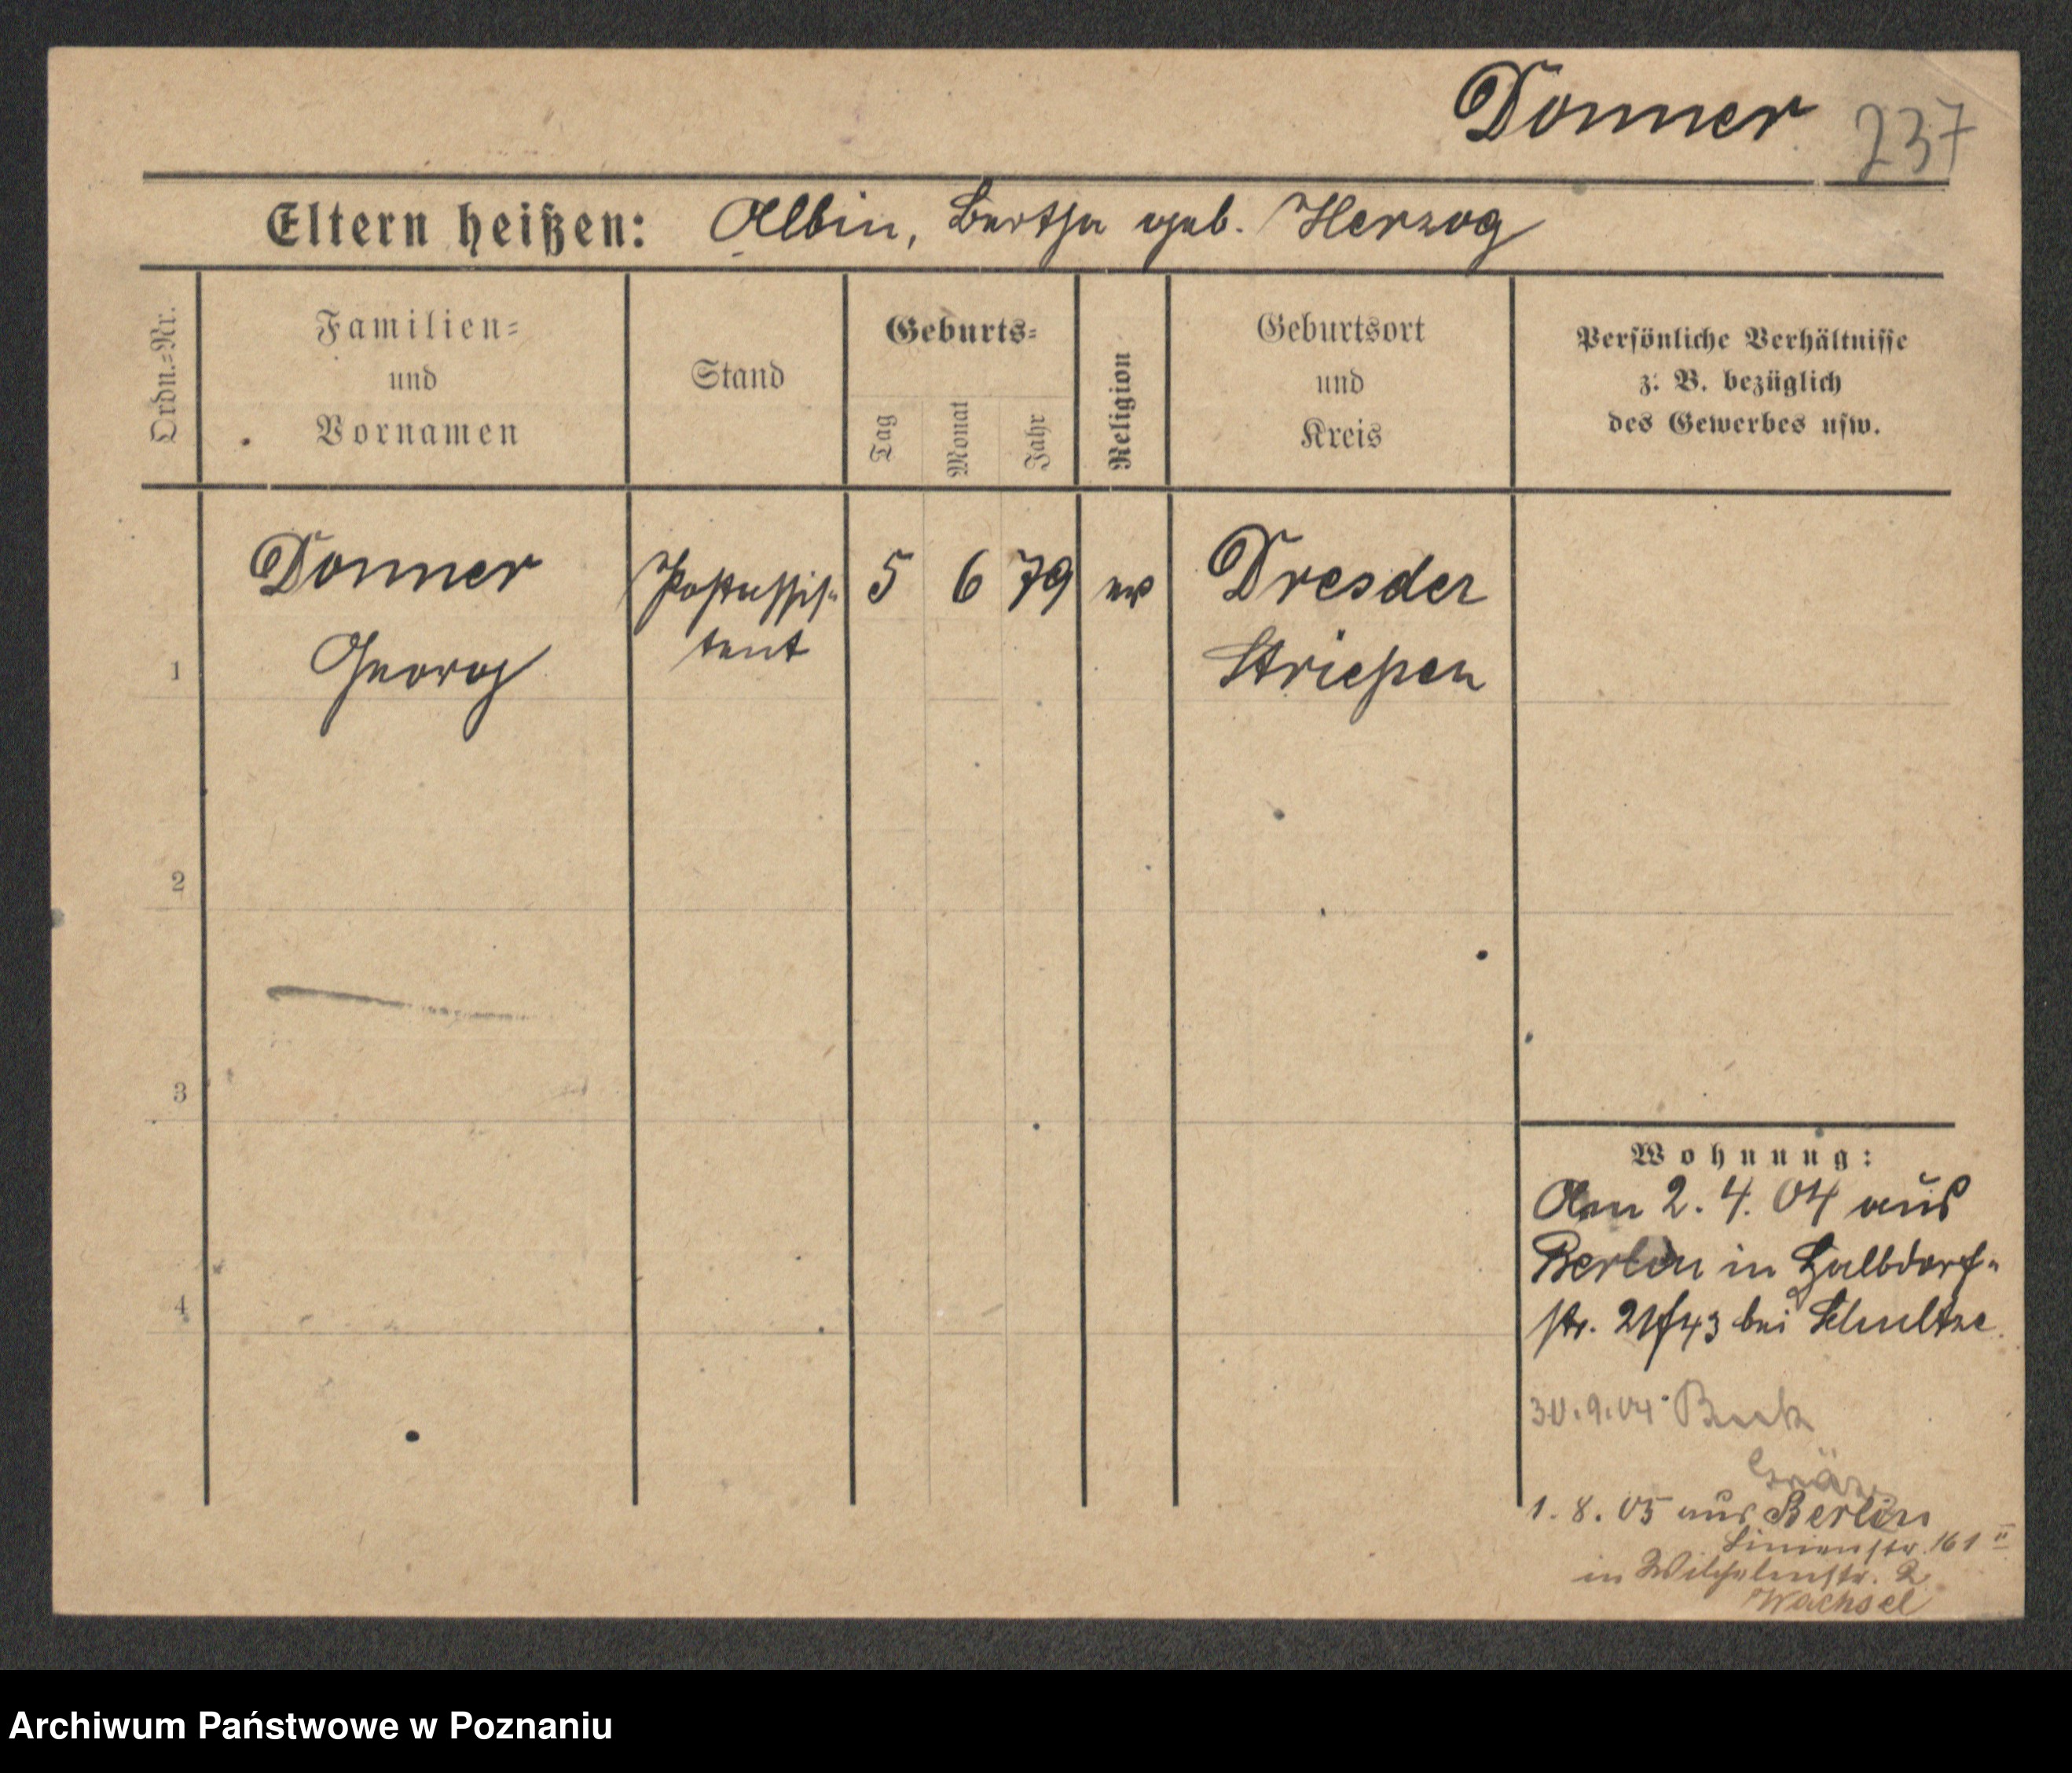 Donner 237
Eltern heißen: Albin, Bertha geb. Herzog
Ordn.=Nr.
Familien=
und
Vornamen
Stand
Geburts=
Tag
Monat
Jahr
Religion
Geburtsort
und
Kreis
Persönliche Verhältnisse
z. B. bezüglich
des Gewerbes usw.
1
Donner
Georg
Postassis-
tent
5 6 79 ev
Dresden
Striesen
2
3
4
Wohnung:
Am 2. 4. 04 aus
Berlin in Halbdorf-
str. bei Schultze
30.9.04 Buk
1. 8. 05 aus Berlin
Linienstr. 161 II
in Wilhelmstr. 2
Wachsel
Archiwum Państwowe w Poznaniu